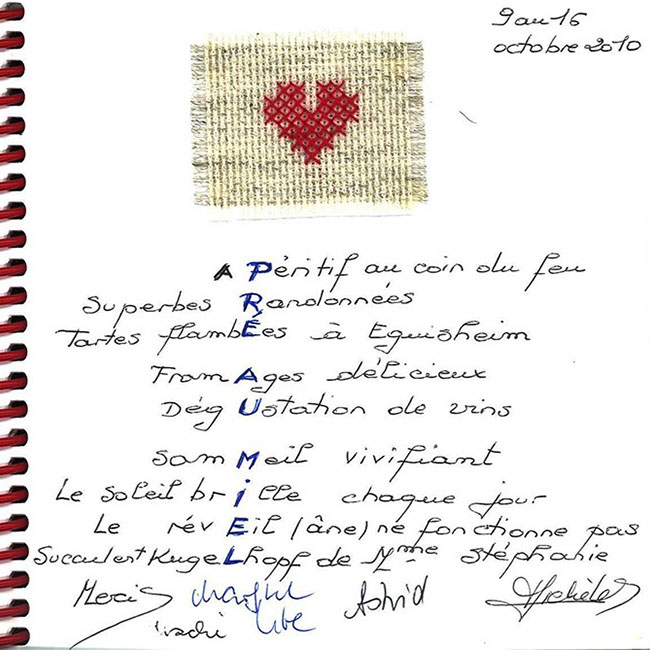 9 au 16
octobre 2010
APéritif au coin du feu
Superbes Randonnées
Tartes flambÉes à Eguisheim
FromAges délicieux
DégUstation de vins
somMeil vivifiant
Le soleil brille chaque jour
Le révEil (âne) ne fonctionne pas
Succulent KugeLhopf de Mme Stéphanie
Merci Astrid